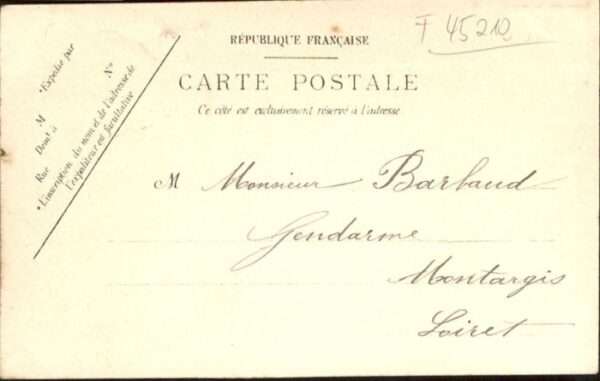 F 45210
RÉPUBLIQUE FRANÇAISE
CARTE POSTALE
Ce côté est exclusivement réservé à l'adresse
*Expédié par
M
Demt à
Rue
N°
*L'inscription du nom et de l'adresse de
l'expéditeur est facultative
M Monsieur Barbaud
Gendarme
Montargis
Loiret